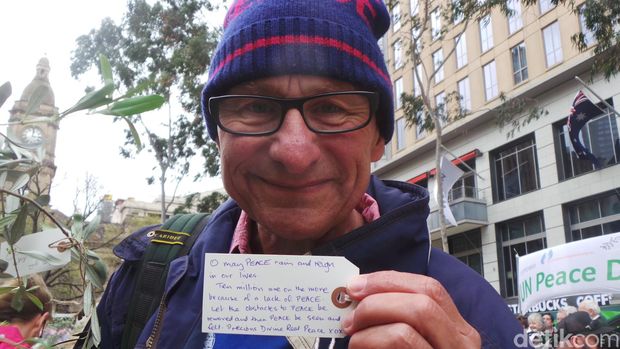 O may PEACE rain and reign
in our lives
Ten million are on the move
because of a lack of PEACE.
Let the obstacles to PEACE be
removed and then PEACE be seen and
felt. Precious Divine Real Peace xox
CARIBEE
UN Peace D
BUCKS COFFEE
detikcom